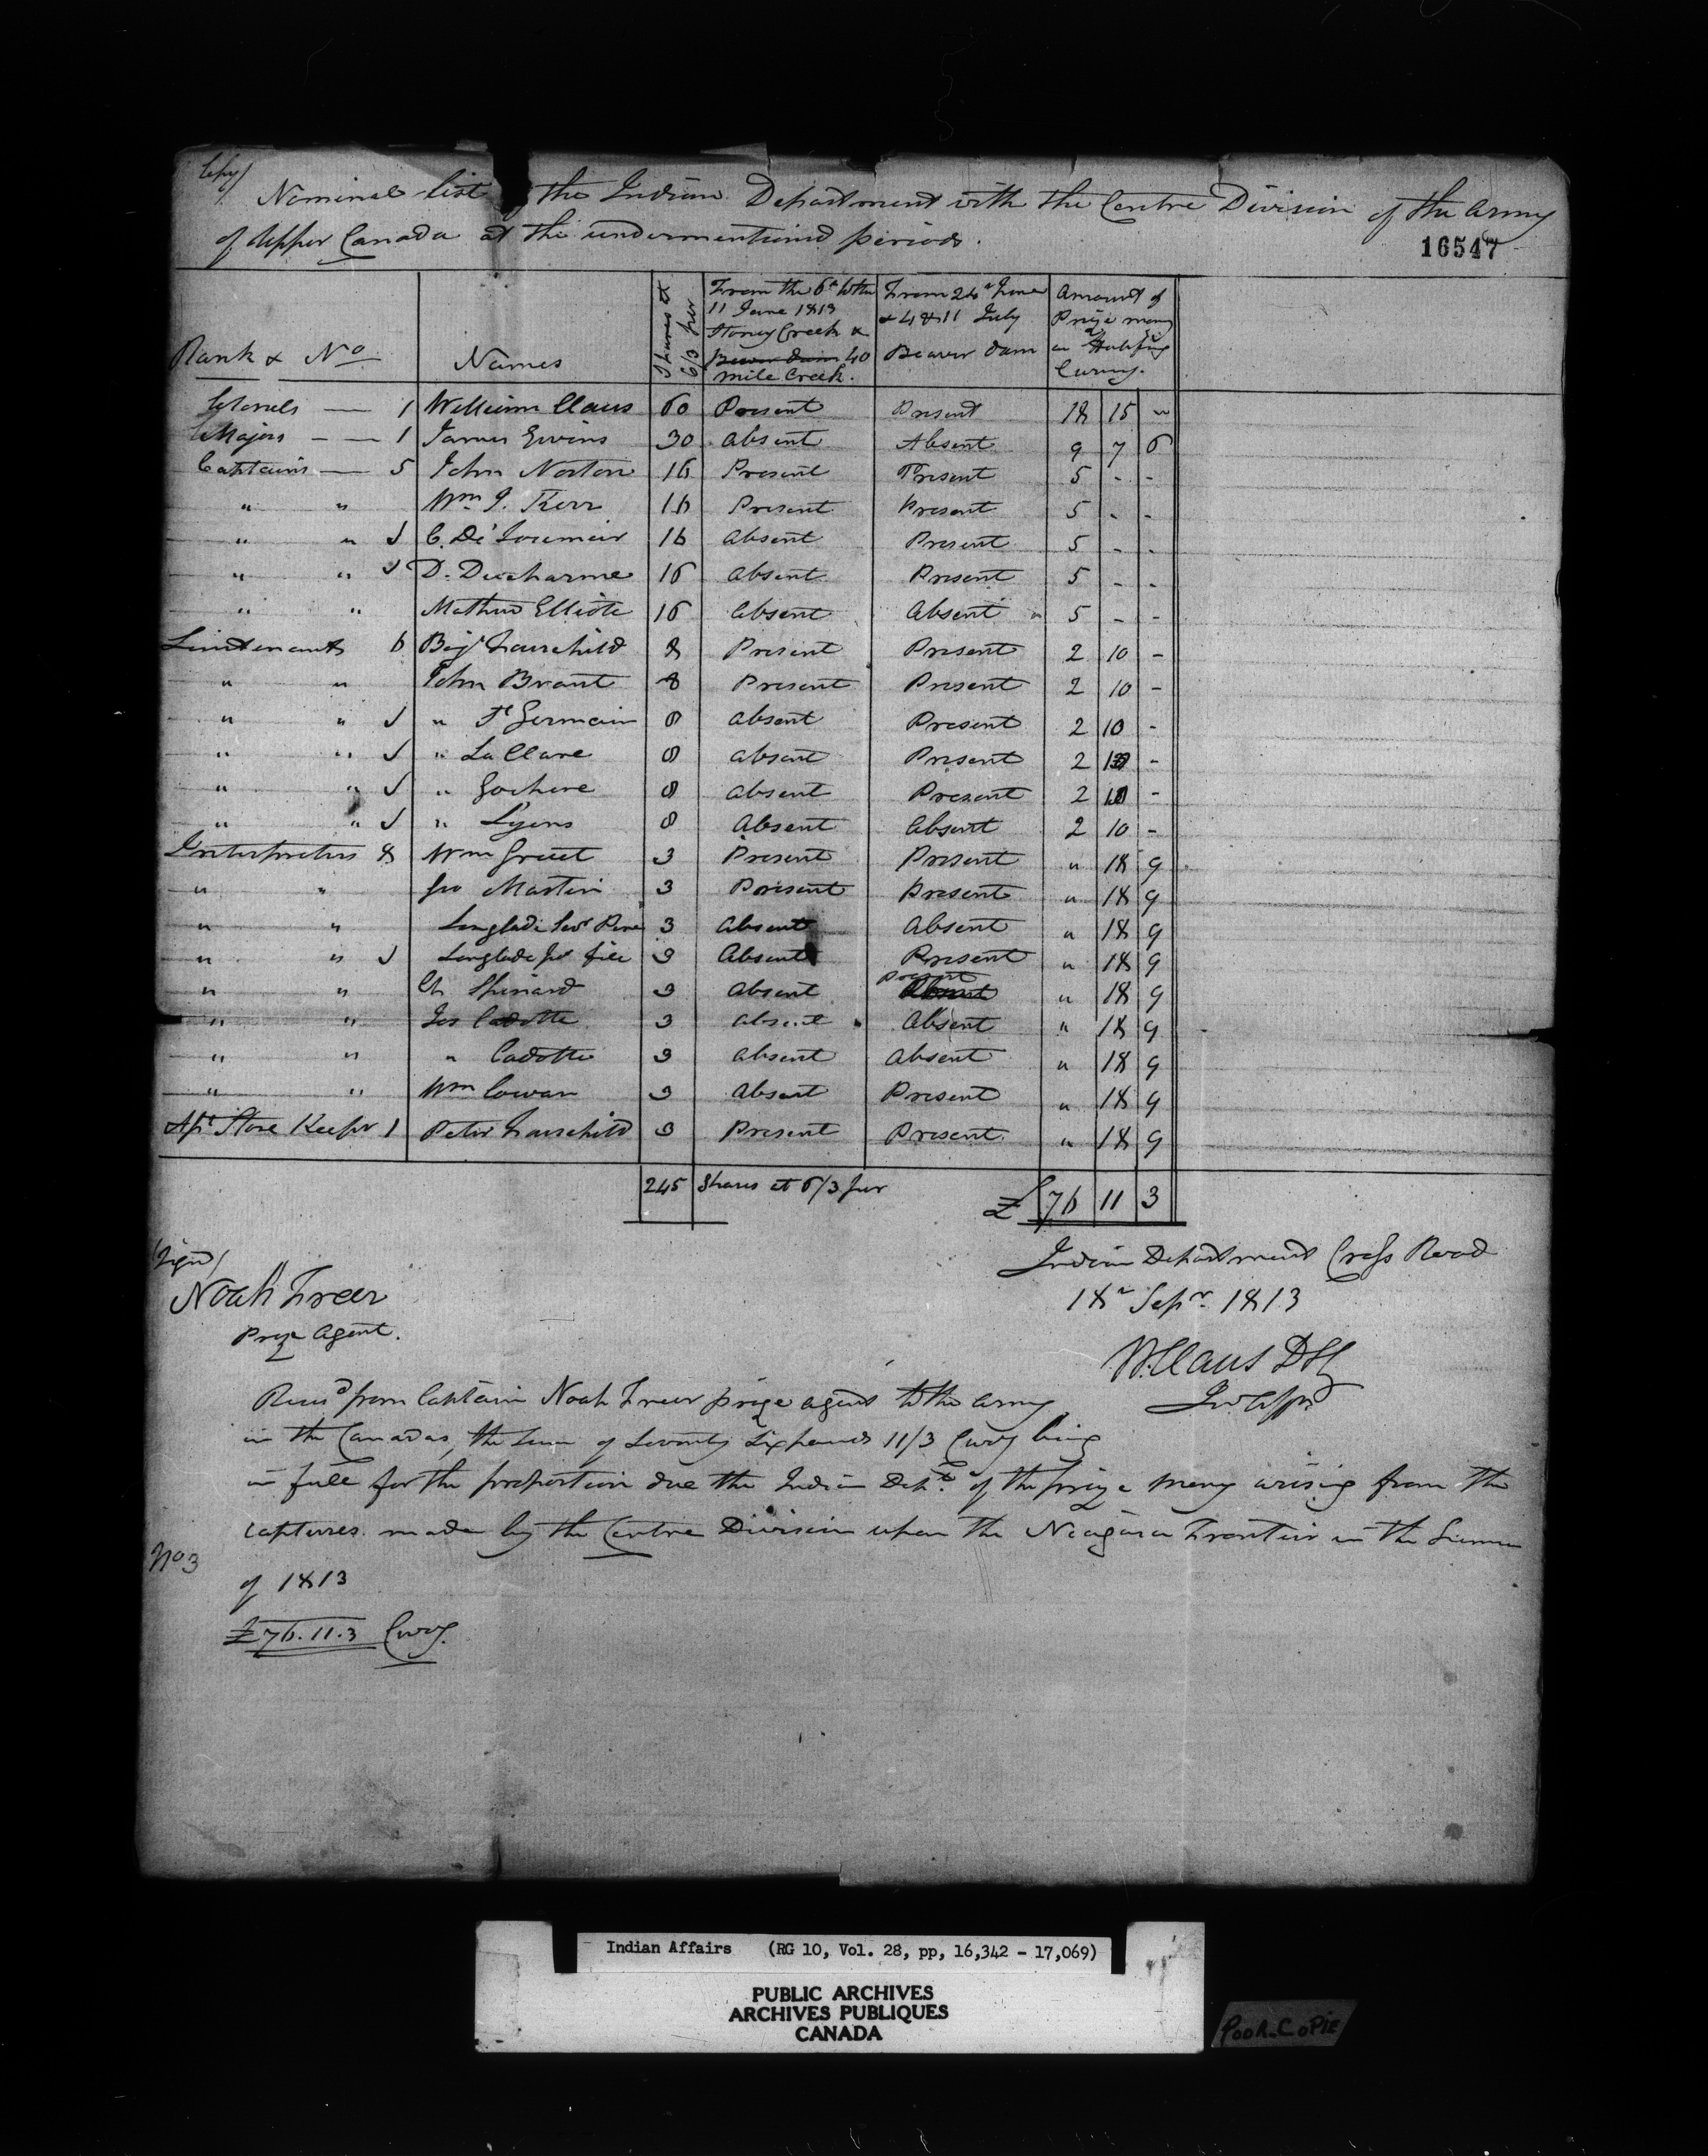 Copy/
Nominal list the Indian Department with the Centre Division of the Army
of Upper Canada at the undermentioned periods.
16547
Rank & No Names Shares at 6/3 per From the 6th to the 11 June 1813 Stoney Creek & Beaver Dam 40 mile Creek. From 24th June & 4 & 11 July Beaver Dam Amount of Prize money in Halifax Curcy.
Colonels — 1 William Claus 60 Present Present 18 15 "
Majors — — 1 James Givins 30 Absent Absent 9 7 6
Captains — 5 John Norton 16 Present Present 5 - -
" " Wm J. Kerr 16 Present Present 5 - -
" " ✓ C. De Lorimier 16 Absent Present 5 - -
" " ✓ D. Ducharme 16 Absent Present 5 - -
" " Mathew Elliott 16 Absent Absent 5 - -
Lieutenants 6 Benjn Fairchild 8 Present Present 2 10 -
" " John Brant 8 Present Present 2 10 -
" " ✓ " St Germain 8 Absent Present 2 10 -
" " ✓ " La Clare 8 Absent Present 2 10 -
" " ✓ " 8 Absent Present 2 10 -
" " ✓ " Lyons 8 Absent Absent 2 10 -
Interpreters 8 Wm Gruet 3 Present Present " 18 9
" " Geo Martin 3 Present Present " 18 9
" " Langlade Senr Pere 3 Absent Absent " 18 9
" " ✓ Langlade Jnr file 3 Absent Present " 18 9
" " Ch 3 Absent Present Absent " 18 9
" " Jos Cadotte 3 Absent Absent " 18 9
" " " Cadotte 3 Absent Absent " 18 9
" " Wm Cowan 3 Absent Present " 18 9
Ast Store Keeper 1 Peter Fairchild 3 Present Present " 18 9
245 Shares at 6/3 per £ 76 11 3
(Signd)
Noah Freer
Prize Agent.
Indian Department Cross Road
18th Sepr. 1813
W. Claus D S G
Ind Affrs
Recd from Captain Noah Freer prize agent to the army
in the Canadas, the sum of Seventy Six pounds 11/3 Curcy being
in full for the proportion due the Indian Dept. of the prize money arising from the
captures made by the Centre Division upon the Niagara Frontier in the Summer
No 3
of 1813
£76.11.3 Curcy.
Indian Affairs (RG 10, Vol. 28, pp, 16,342 - 17,069)
PUBLIC ARCHIVES
ARCHIVES PUBLIQUES
CANADA
POOR COPIE